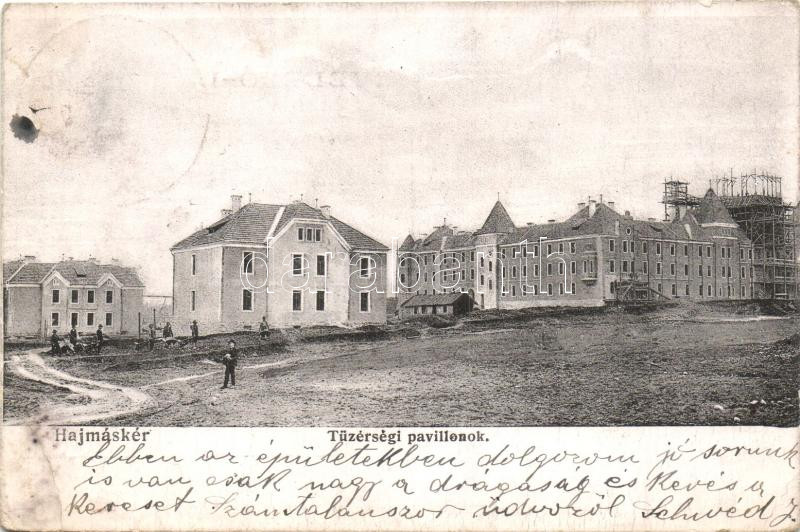 darabanth
Hajmáskér Tüzérségi pavillonok.
Ebben az épületekben dolgozom jó sorunk
is van csak nagy a drágaság és kevés a
kereset Számtalanszor üdvözöl Schwéd J